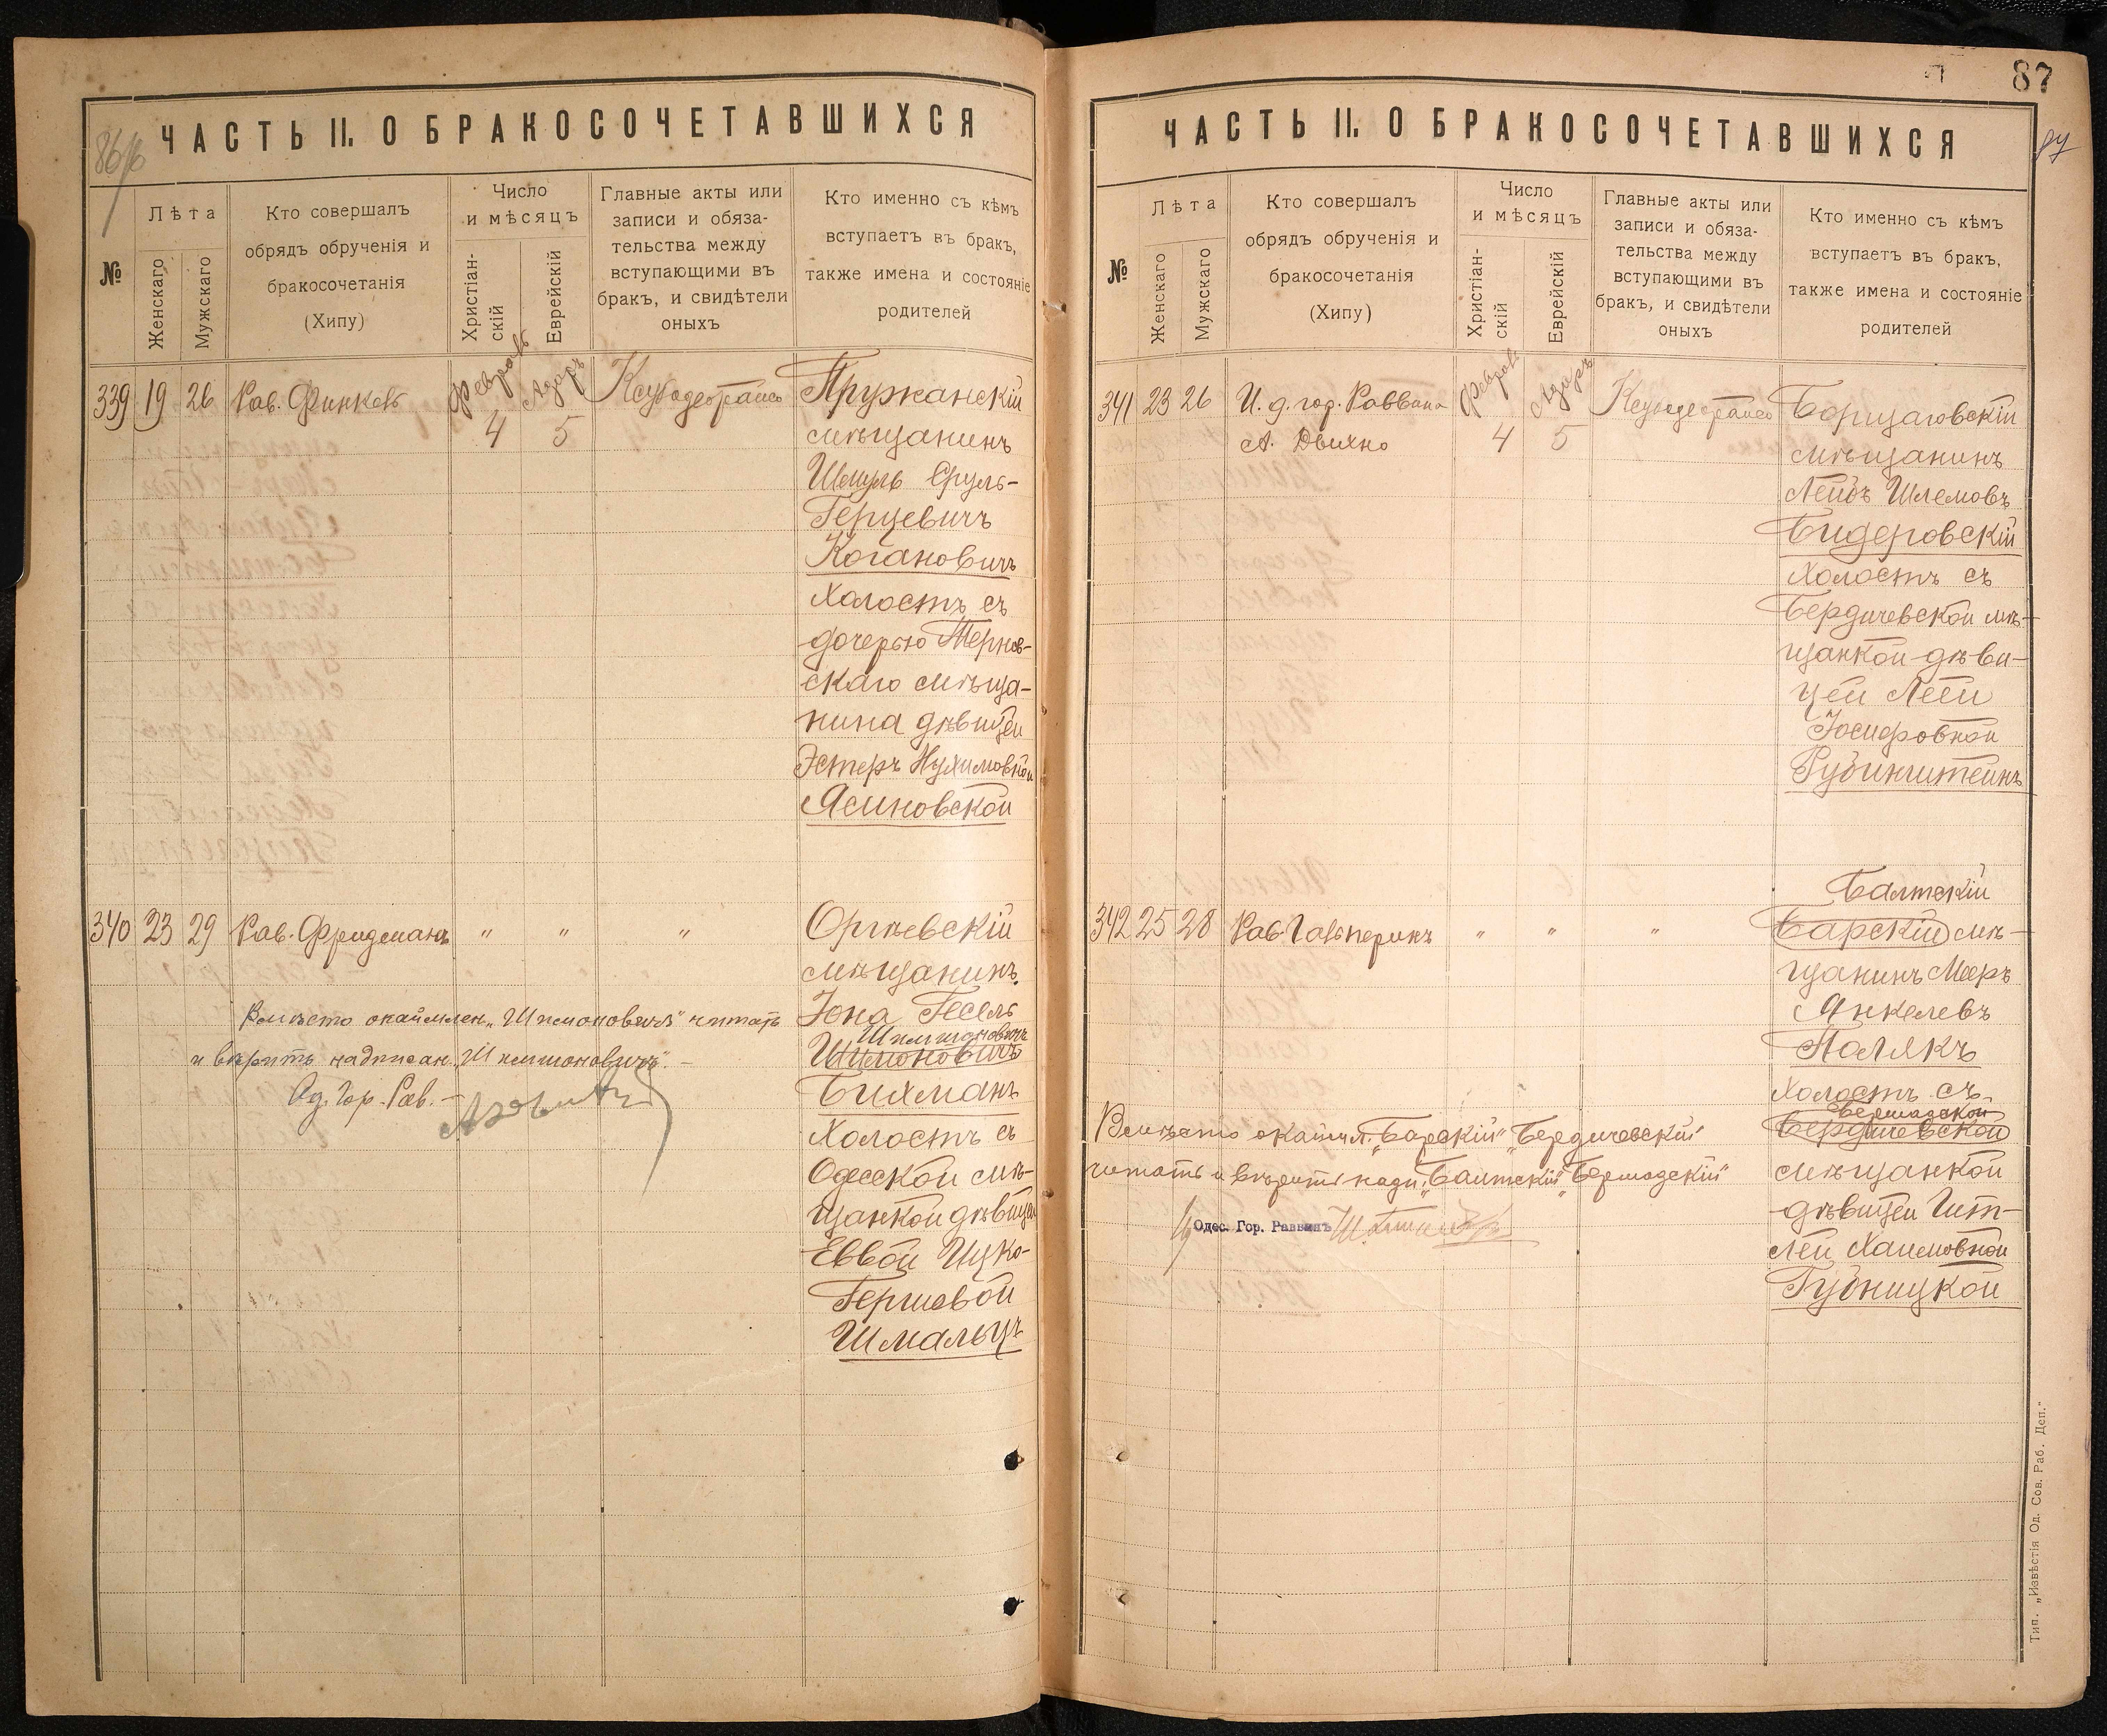 ЧАСТЬ II. О БРАКОСОЧЕТАВШИХСЯ
№
Лѣта
Женскаго
Мужскаго
Кто совершалъ
обрядъ обрученія и
бракосочетанія
(Хипу)
Число
и мѣсяцъ
Христіан-
скій
Еврейскій
Главные акты или
записи и обяза-
тельства между
вступающими въ
бракъ, и свидѣтели
оныхъ
Кто именно съ кѣмъ
вступаетъ въ бракъ,
также имена и состояніе
родителей
339 19 26 Рав. Финкель
Февраль 4
Адаръ 5
Пружанскій
мѣщанинъ
Шмуль Сруль-
Герцевичъ
Когановичъ
холостъ съ
дочерью Тернов-
скаго мѣща-
нина дѣвицей
Эстеръ Нухимовной
Ясиновской
340 23 29 Рав. Фридманъ " " "
Оргѣевскій
мѣщанинъ
Іона Гесель
Шлимоновичъ
Шимоновичъ
Бихманъ
холостъ съ
Одесской мѣ-
щанкой дѣвицей
Еввой Ицко-
Гершовой
Шмальцъ
Вмѣсто окаймлен. „Шимоновичъ" читать
и вѣрить надписан. „Шлимоновичъ". –
Од. Гор. Рав. –
87
ЧАСТЬ II. О БРАКОСОЧЕТАВШИХСЯ
№
Лѣта
Женскаго
Мужскаго
Кто совершалъ
обрядъ обрученія и
бракосочетанія
(Хипу)
Число
и мѣсяцъ
Христіан-
скій
Еврейскій
Главные акты или
записи и обяза-
тельства между
вступающими въ
бракъ, и свидѣтели
оныхъ
Кто именно съ кѣмъ
вступаетъ въ бракъ,
также имена и состояніе
родителей
341 23 26 И. д. гор. Раввина
А. Двихно
Февраль 4
Адаръ 5
Борщаговскій
мѣщанинъ
Лейбъ Шлемовъ
Бидеровскій
холостъ съ
Бердичевской мѣ-
щанкой дѣви-
цей Леей
Іосифовной
Рубинштейнъ
342 25 28 Рав. Гальперинъ " " "
Балтскій
Барскій мѣ-
щанинъ Мееръ
Янкелевъ
Полякъ
холостъ съ
Бершадской
Бердичевской
мѣщанкой
дѣвицей Гит-
лей Хаимовной
Губницкой
Вмѣсто окаймл. „Барскій" „Бердичевскій"
читать и вѣрить надп. „Балтскій" „Бершадскій"
Одес. Гор. Раввинъ
Тип. „Извѣстія Од. Сов. Раб. Деп."